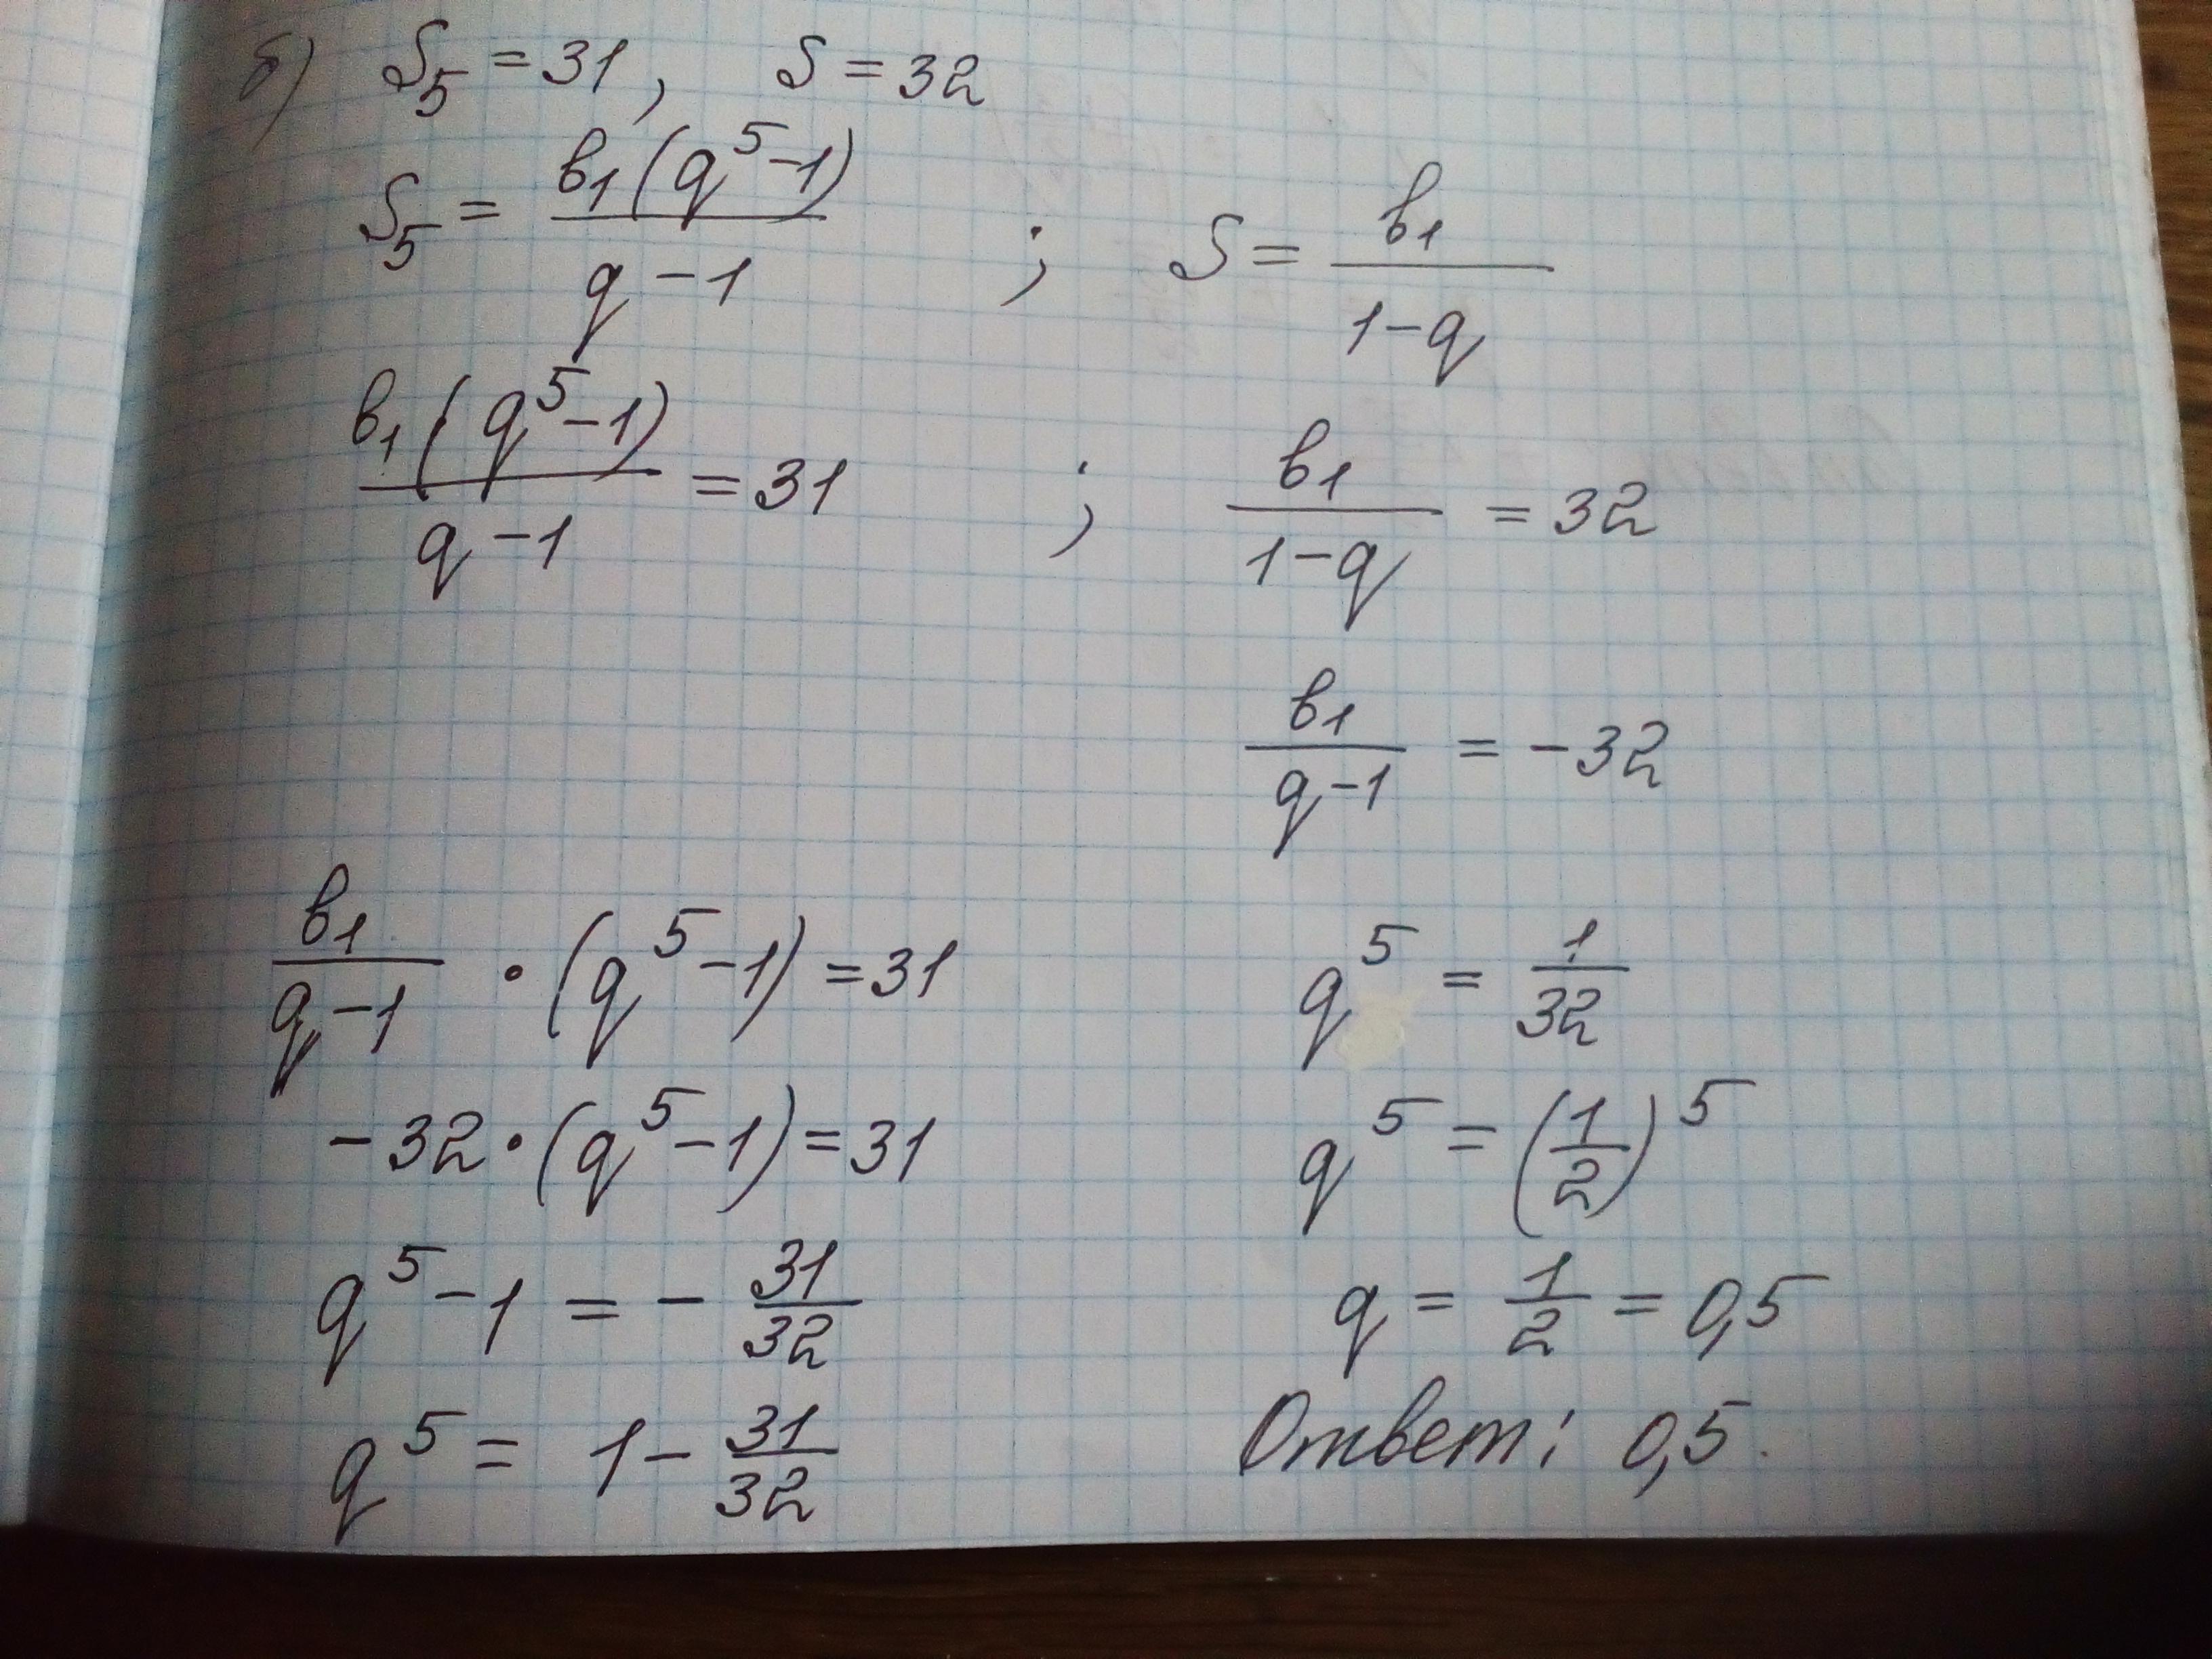 б) S₅ = 31, S = 32
S₅ = в₁(q⁵-1) / q-1 ; S = в₁ / 1-q
в₁(q⁵-1) / q-1 = 31 ; в₁ / 1-q = 32
в₁ / q-1 = -32
в₁ / q-1 · (q⁵-1) = 31
-32 · (q⁵-1) = 31
q⁵-1 = - 31/32
q⁵ = 1 - 31/32
q⁵ = 1/32
q⁵ = (1/2)⁵
q = 1/2 = 0,5
Ответ: 0,5.